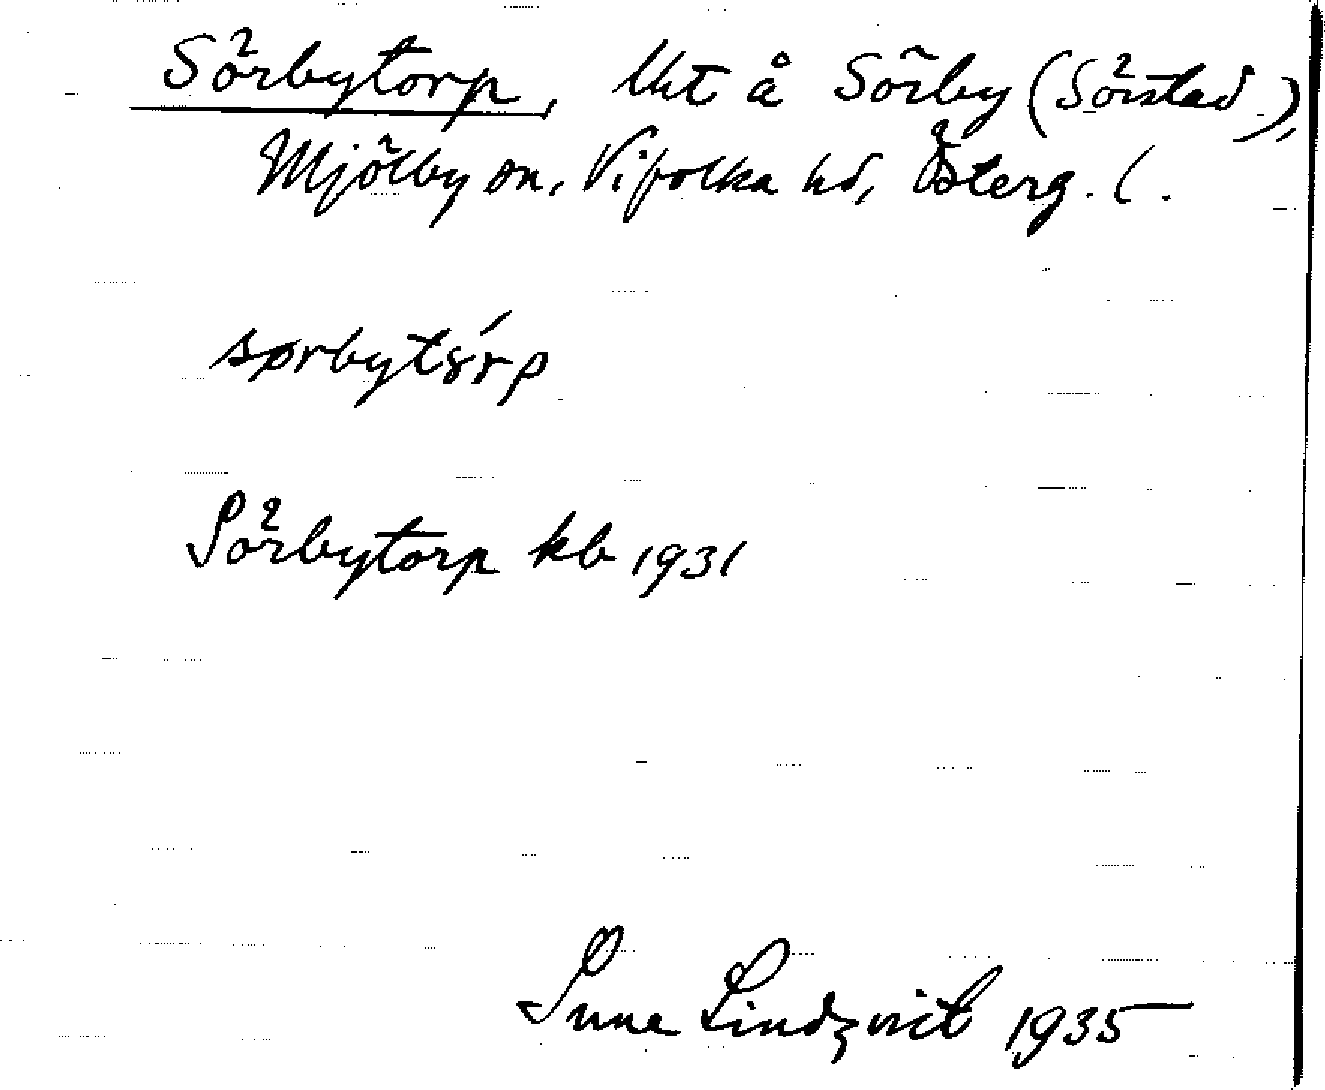 Sörbytorp, lht å Sörby (Sörstad),
Mjölby sn, Vifolka hd, Österg. l.
sørbytɤ́rp
Sörbytorp kb 1931
Sune Lindqvist 1935